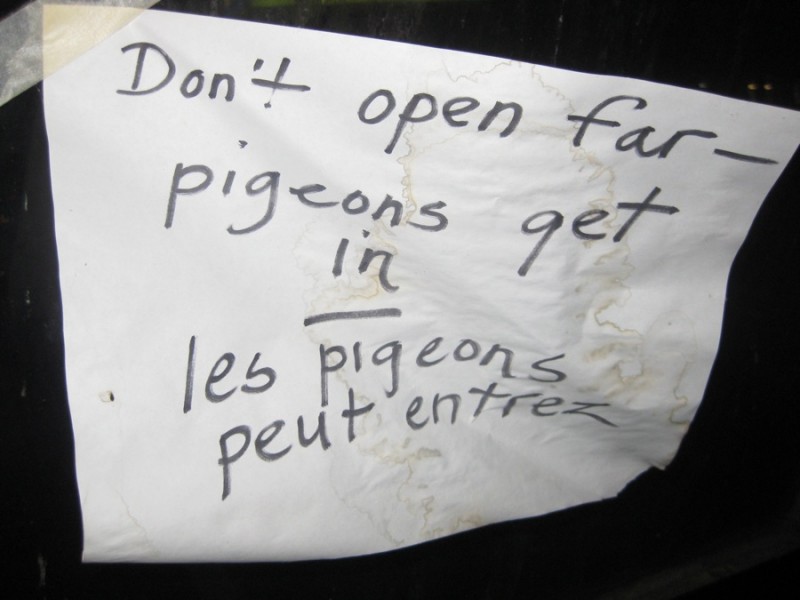 Don't open far—
pigeons get
in
les pigeons
peut entrez